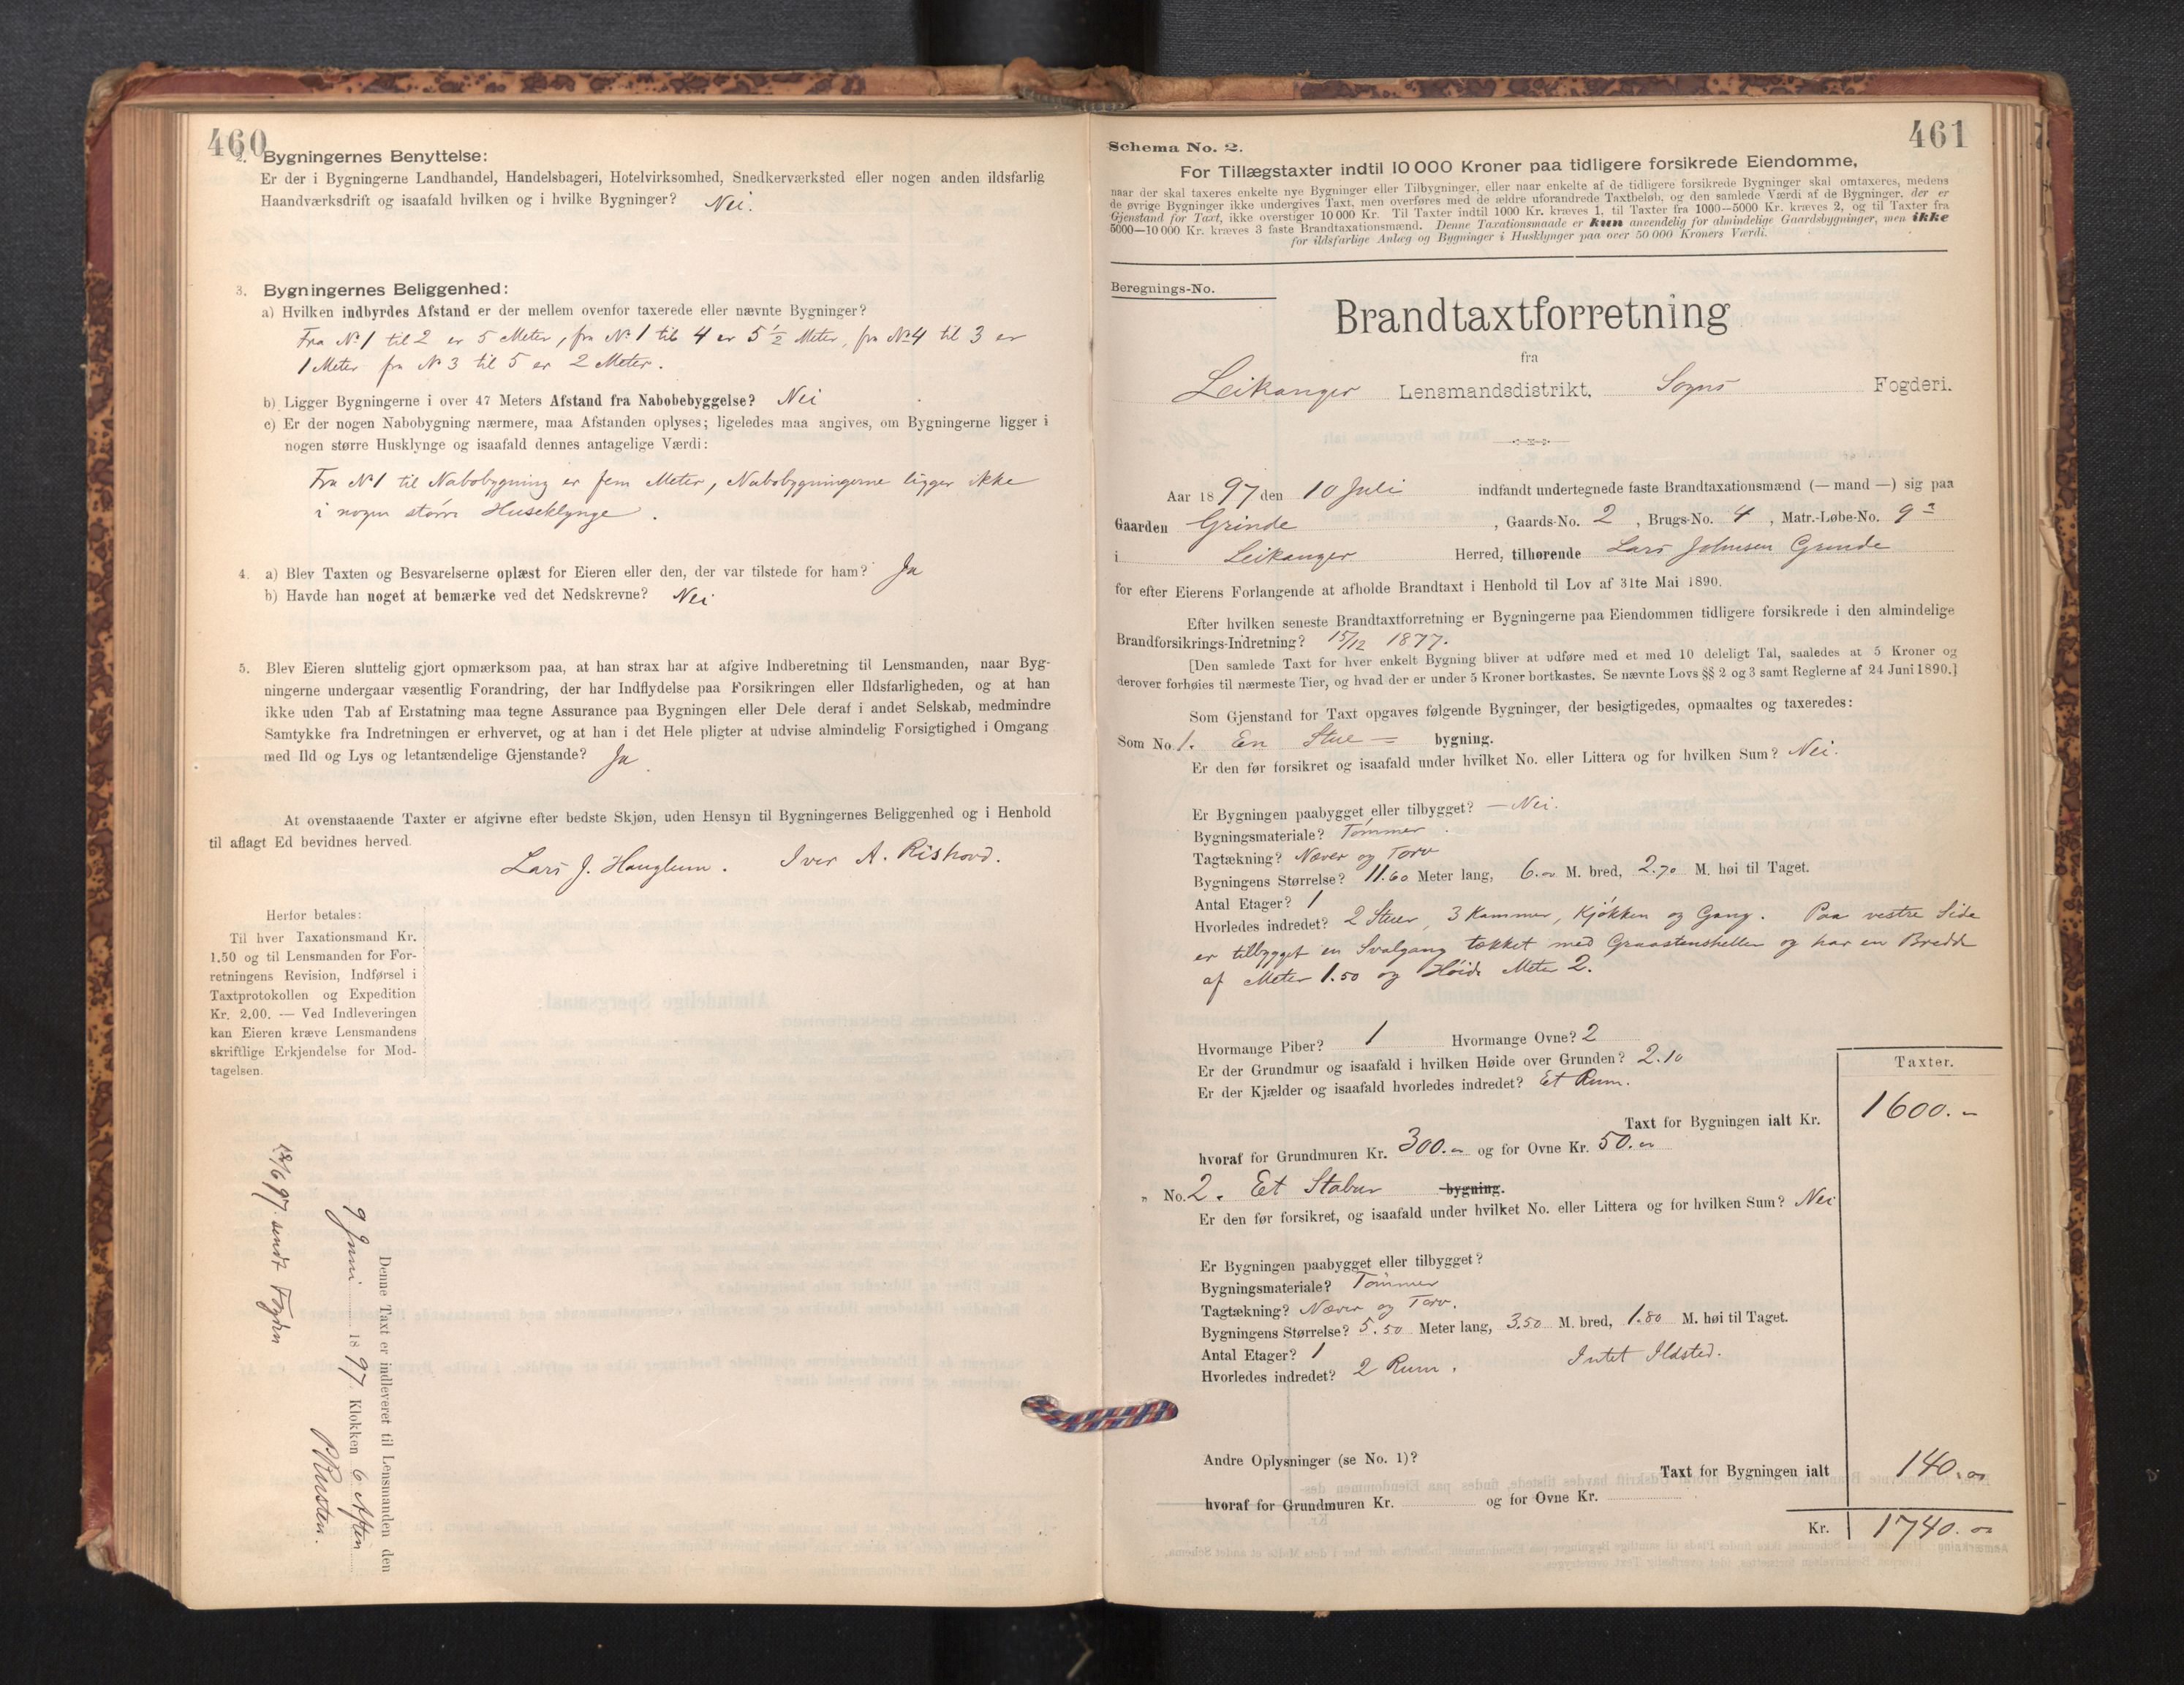 460
2. Bygningernes Benyttelse:
Er der i Bygningerne Landhandel, Handelsbageri, Hotelvirksomhed, Snedkerværksted eller nogen anden ildsfarlig
Haandværksdrift og isaafald hvilken og i hvilke Bygninger? Nei.
3. Bygningernes Beliggenhed:
a) Hvilken indbyrdes Afstand er der mellem ovenfor taxerede eller nævnte Bygninger?
Fra No 1 til 2 er 5 Meter, fra No 1 til 4 er 5 1/2 Meter, fra No 4 til 3 er
1 Meter fra No 3 til 5 er 2 Meter.
b) Ligger Bygningerne i over 47 Meters Afstand fra Nabobebyggelse? Nei
c) Er der nogen Nabobygning nærmere, maa Afstanden oplyses; ligeledes maa angives, om Bygningerne ligger i
nogen større Husklynge og isaafald dennes antagelige Værdi:
Fra No 1 til Nabobygning er fem Meter, Nabobygningerne ligger ikke
i nogen større Huseklynge.
4. a) Blev Taxten og Besvarelserne oplæst for Eieren eller den, der var tilstede for ham? Ja
b) Havde han noget at bemærke ved det Nedskrevne? Nei
5. Blev Eieren sluttelig gjort opmærksom paa, at han strax har at afgive Indberetning til Lensmanden, naar Byg-
ningerne undergaar væsentlig Forandring, der har Indflydelse paa Forsikringen eller Ildsfarligheden, og at han
ikke uden Tab af Erstatning maa tegne Assurance paa Bygningen eller Dele deraf i andet Selskab, medmindre
Samtykke fra Indretningen er erhvervet, og at han i det Hele pligter at udvise almindelig Forsigtighed i Omgang
med Ild og Lys og letantændelige Gjenstande? Ja
At ovenstaaende Taxter er afgivne efter bedste Skjøn, uden Hensyn til Bygningernes Beliggenhed og i Henhold
til aflagt Ed bevidnes herved.
Lars J. Hauglum. Iver A. Rishovd.
Herfor betales:
Til hver Taxationsmand Kr.
1.50 og til Lensmanden for For-
retningens Revision, Indførsel i
Taxtprotokollen og Expedition
Kr. 2.00. — Ved Indleveringen
kan Eieren kræve Lensmandens
skriftlige Erkjendelse for Mod-
tagelsen.
Denne Taxt er indleveret til Lensmanden den
9 Juni 1897. Klokken 6 Aften
12/6 97. sendt Fogden
461
Schema No. 2.
For Tillægstaxter indtil 10 000 Kroner paa tidligere forsikrede Eiendomme,
naar der skal taxeres enkelte nye Bygninger eller Tilbygninger, eller naar enkelte af de tidligere forsikrede Bygninger skal omtaxeres, medens
de øvrige Bygninger ikke undergives Taxt, men overføres med de ældre uforandrede Taxtbeløb, og den samlede Værdi af de Bygninger, der er
Gjenstand for Taxt, ikke overstiger 10 000 Kr. Til Taxter indtil 1000 Kr. kræves 1, til Taxter fra 1000—5000 Kr. kræves 2, og til Taxter fra
5000—10 000 Kr. kræves 3 faste Brandtaxationsmænd. Denne Taxationsmaade er kun anvendelig for almindelige Gaardsbygninger, men ikke
for ildsfarlige Anlæg og Bygninger i Husklynger paa over 50 000 Kroners Værdi.
Beregnings-No.
Brandtaxtforretning
fra
Leikanger Lensmandsdistrikt, Sogns Fogderi.
Aar 1897 den 10 Juli indfandt undertegnede faste Brandtaxationsmænd (— mand —) sig paa
Gaarden Grinde, Gaards-No. 2, Brugs-No. 4, Matr.-Løbe-No. 9 a
i Leikanger Herred, tilhørende Lars Johnsen Grinde
for efter Eierens Forlangende at afholde Brandtaxt i Henhold til Lov af 31te Mai 1890.
Efter hvilken seneste Brandtaxtforretning er Bygningerne paa Eiendommen tidligere forsikrede i den almindelige
Brandforsikrings-Indretning? 15/12 1877.
[Den samlede Taxt for hver enkelt Bygning bliver at udføre med et med 10 deleligt Tal, saaledes at 5 Kroner og
derover forhøies til nærmeste Tier, og hvad der er under 5 Kroner bortkastes. Se nævnte Lovs §§ 2 og 3 samt Reglerne af 24 Juni 1890.]
Som Gjenstand for Taxt opgaves følgende Bygninger, der besigtigedes, opmaaltes og taxeredes:
Som No 1. En Stue = bygning.
Er den før forsikret og isaafald under hvilket No. eller Littera og for hvilken Sum? Nei.
Er Bygningen paabygget eller tilbygget? — Nei.
Bygningsmateriale? Tømmer
Tagtækning? Næver og Torv
Bygningens Størrelse? 11.60 Meter lang, 6.00 M. bred, 2.70 M. høi til Taget.
Antal Etager? 1
Hvorledes indredet? 2 Stuer, 3 Kammer, Kjøkken og Gang. Paa vestre Side
er tilbygget en Svalgang tækket med Graastensheller og har en Bredde
af Meter 1.50 og Høide Meter 2.
Hvormange Piber? 1 Hvormange Ovne? 2
Er der Grundmur og isaafald i hvilken Høide over Grunden? 2.10
Er der Kjælder og isaafald hvorledes indredet? Et Rum.
Taxter.
Taxt for Bygningen ialt Kr. 1600.–
hvoraf for Grundmuren Kr. 300.00 og for Ovne Kr. 50.00
" No. 2. Et Stabur bygning.
Er den før forsikret, og isaafald under hvilket No. eller Littera og for hvilken Sum? Nei
Er Bygningen paabygget eller tilbygget?
Bygningsmateriale? Tømmer
Tagtækning? Næver og Torv.
Bygningens Størrelse? 5.50 Meter lang, 3.50 M. bred, 1.80 M. høi til Taget.
Antal Etager? 1
Hvorledes indredet? 2 Rum. Intet Ildsted.
Andre Oplysninger (se No. 1)?
Taxt for Bygningen ialt 140.00
hvoraf for Grundmuren Kr. og for Ovne Kr.
Kr. 1740.00